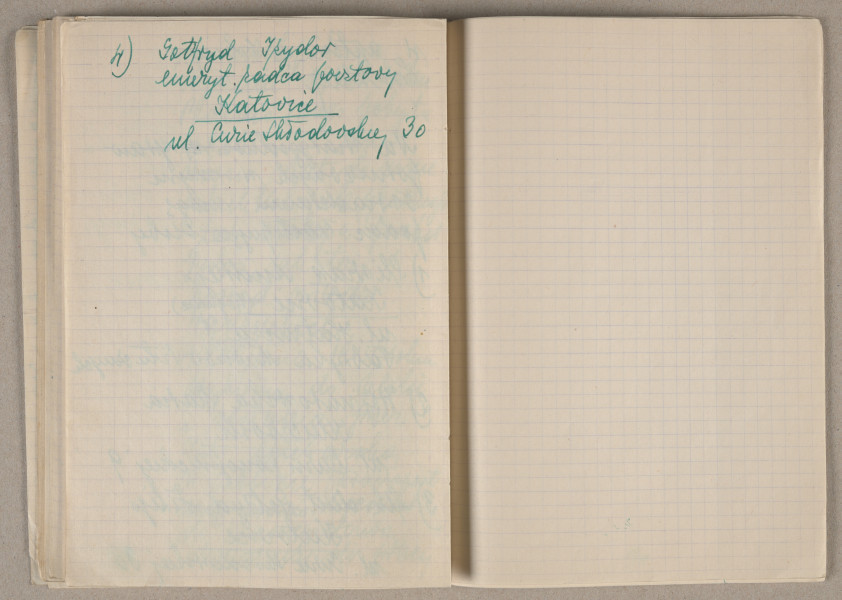 4) Gotfryd Izydor
emeryt. radca pocztowy
Katowice
ul. Curie Skłodowskiej 30